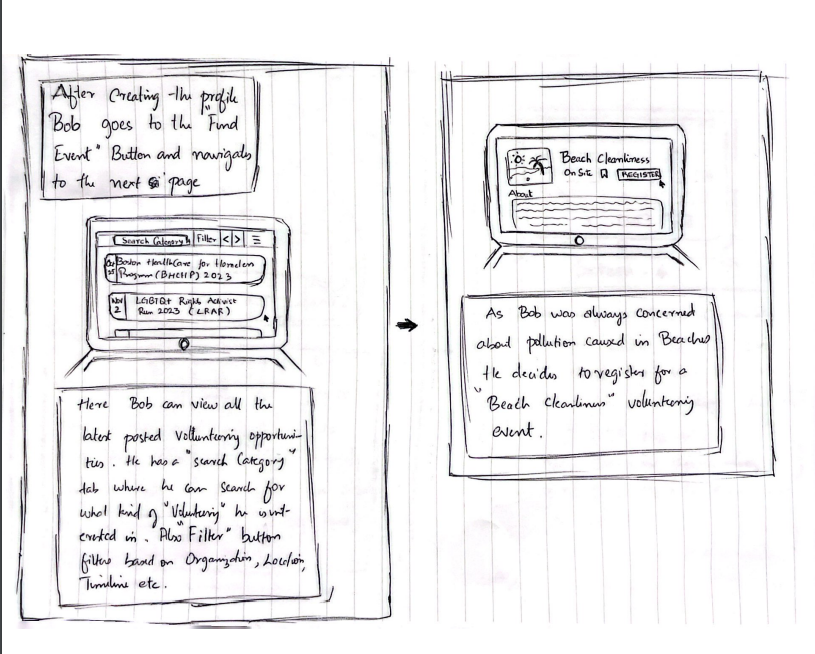 After Creating the profile
Bob goes to the "Find
Event" Button and navigates
to the next page
Search Category Filter < > ☰
Oct 25 Boston HealthCare for Homeless
Program (BHCHP) 2023
Nov LGBTQ+ Rights Activist
2 Run 2023 (LRAR)
Here Bob can view all the
latest posted Volunteering opportuni-
ties. He has a "search Category"
tab where he can search for
what kind of "Volunteering" he is int-
erested in. Also "Filter" button
filters based on Organization, Location,
Timeline etc.
Beach Cleanliness
On Site REGISTER
About
As Bob was always concerned
about pollution caused in Beaches
He decides to register for a
"Beach Cleanliness" volunteering
event.